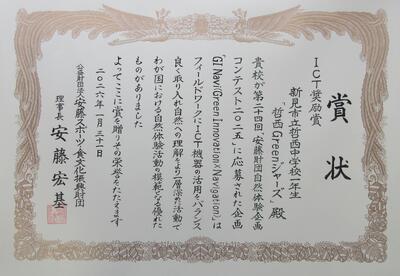 賞状
ICT奨励賞
新見市立哲西中学校一年生
「哲西Greenジャーズ」殿
貴校が第二十四回「安藤財団自然体験企画
コンテスト二〇二五」に応募された企画
「GI Navi(Green Innovation×Navigation)」は
フィールドワークにICT機器の活用をバランス
良く取り入れ自然への理解をより一層深めた活動で
わが国における自然体験活動の模範となる優れた
ものがありました
よってここに賞を贈りその栄誉をたたえます
二〇二六年一月三十一日
公益財団法人安藤スポーツ・食文化振興財団
理事長 安藤宏基